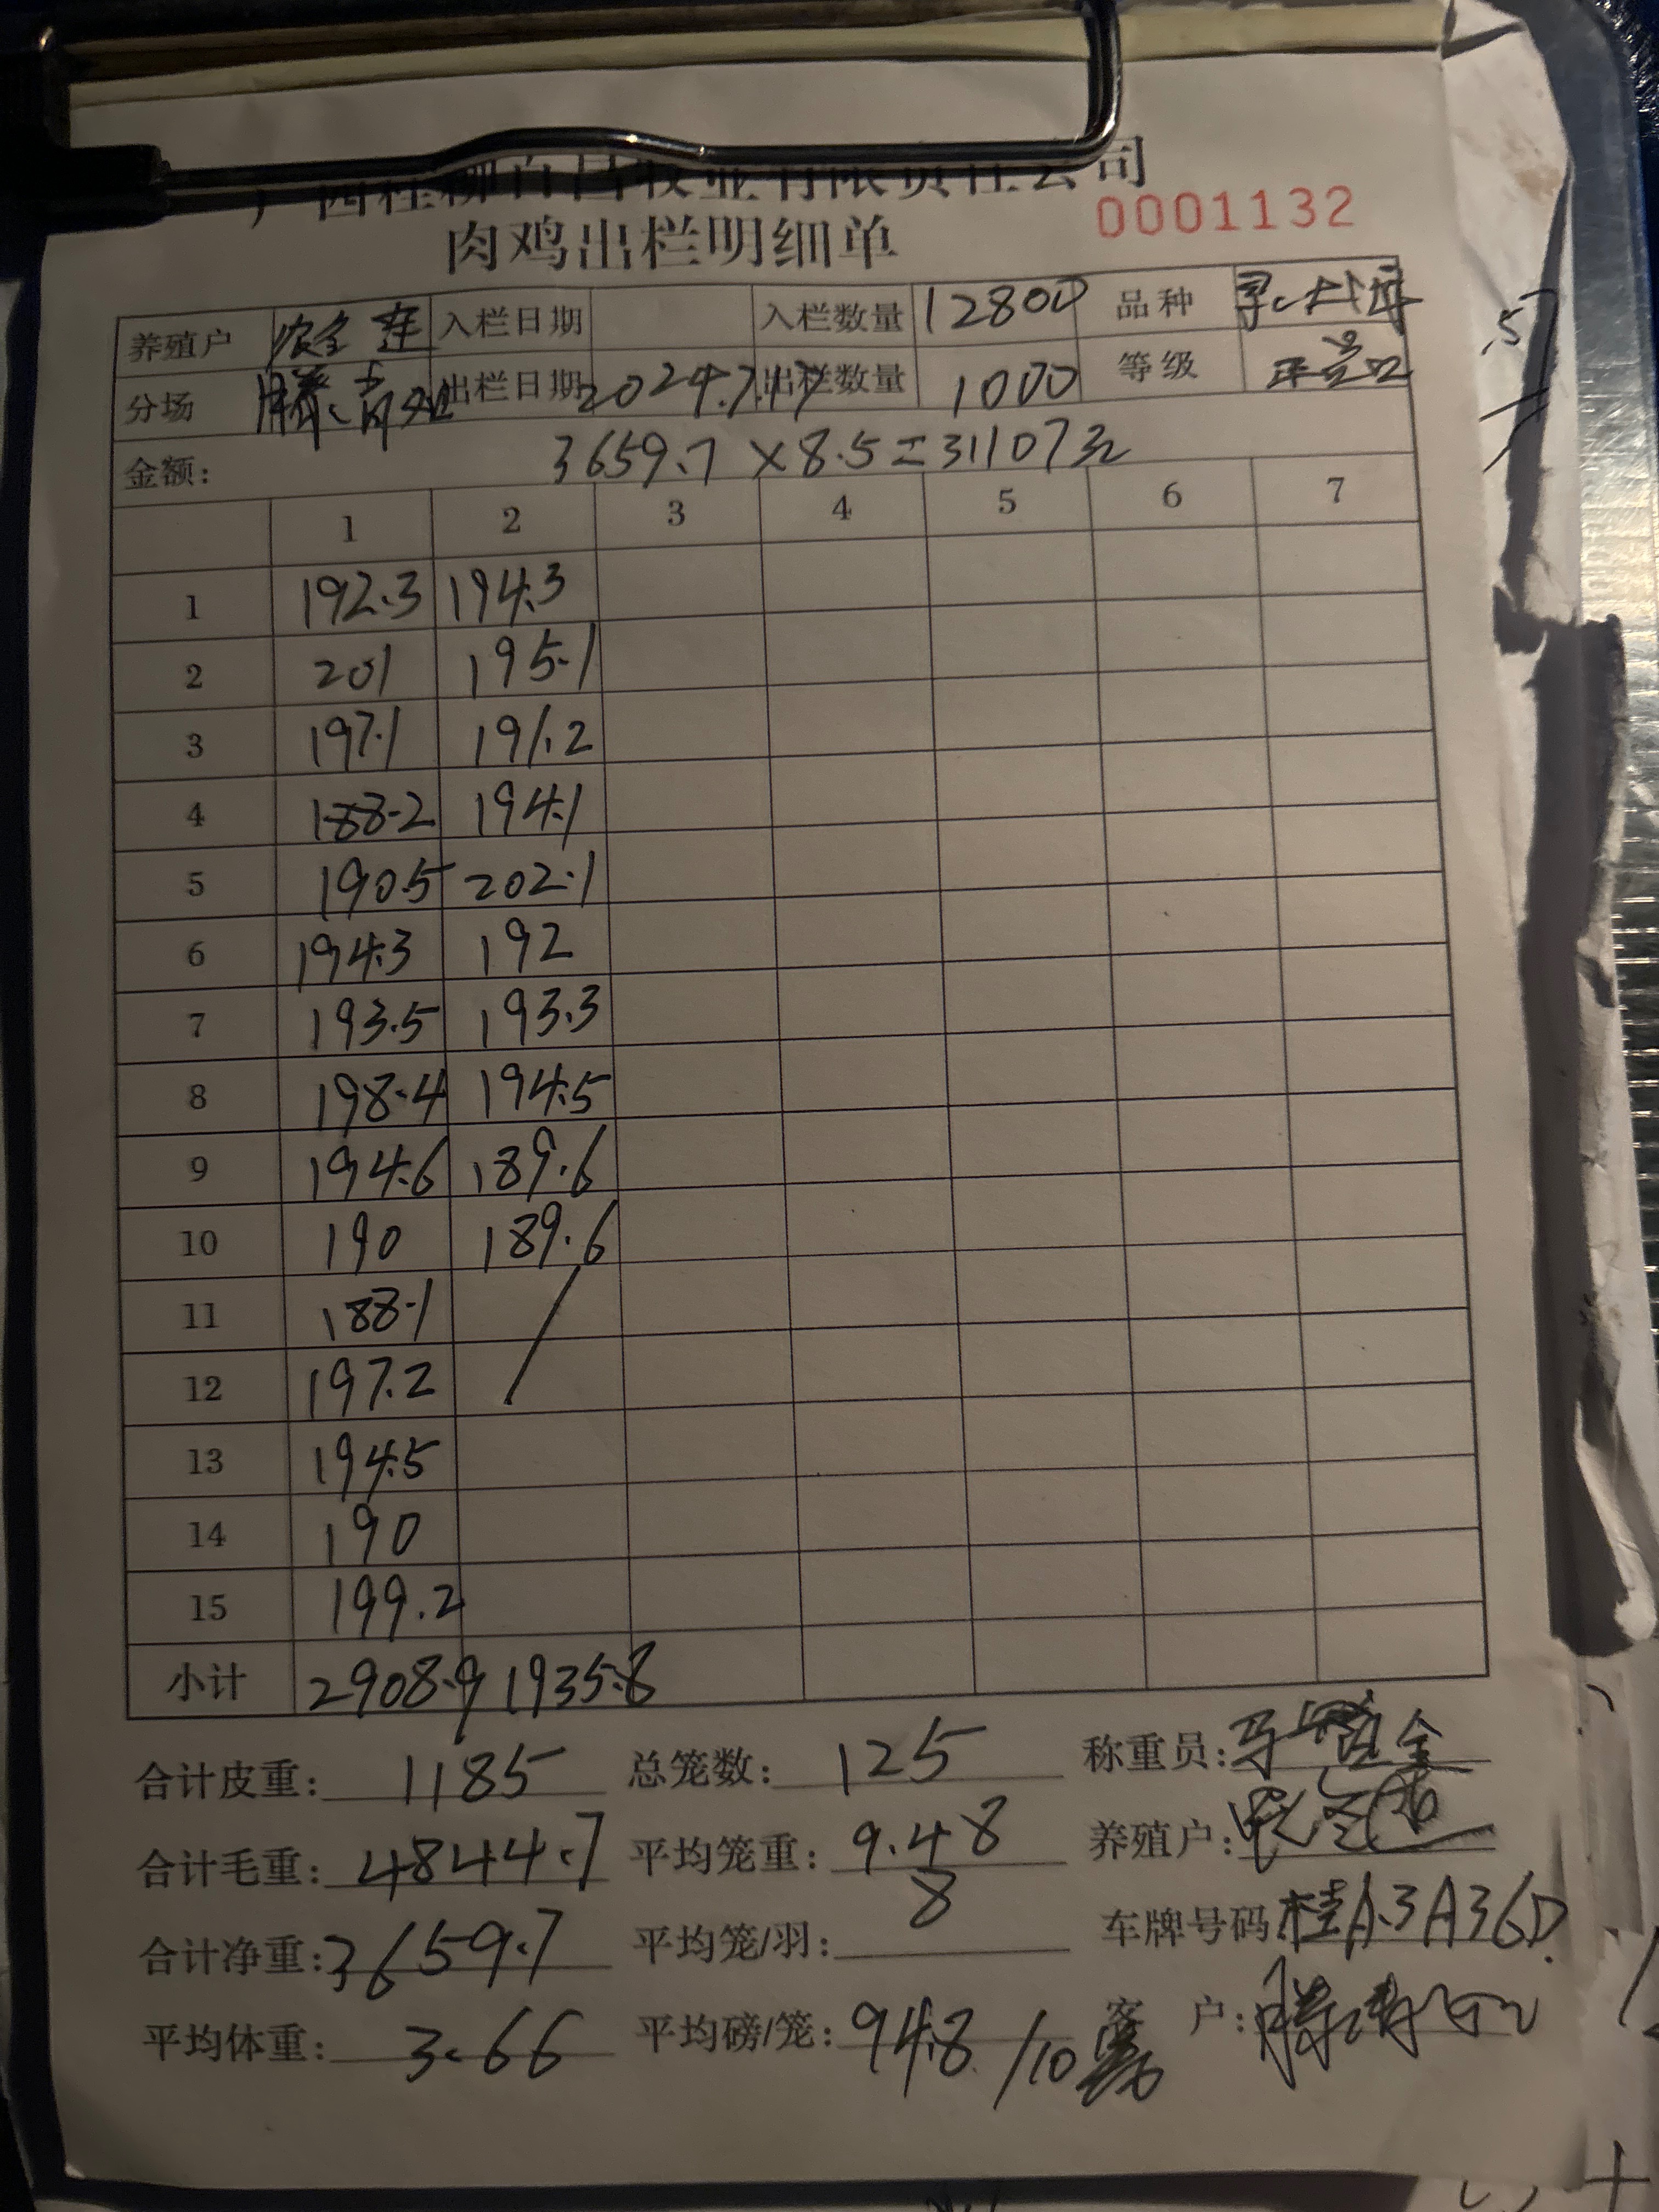 肉鸡出栏明细单 0001132
养殖户 入栏日期 入栏数量 12800 品种
分场 出栏日期 2024.7.17 出栏数量 1000 等级
金额: 3659.7 × 8.5 = 31107元
1 2 3 4 5 6 7
1 192.3 194.3
2 201 195.1
3 197.1 191.2
4 188.2 194.1
5 190.5 202.1
6 194.3 192
7 193.5 193.3
8 198.4 194.5
9 194.6 189.6
10 190 189.6
11 188.1
12 197.2
13 194.5
14 190
15 199.2
小计 2908.9 1935.8
合计皮重: 1185 总笼数: 125 称重员:
合计毛重: 4844.7 平均笼重: 9.48 养殖户:
合计净重: 3659.7 平均笼/羽: 8 车牌号码 桂A.3A36D
平均体重: 3.66 平均磅/笼: 94.8/10 客 户: